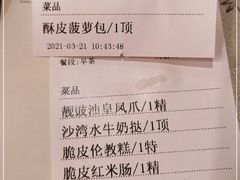 菜品
酥皮菠萝包/1顶
2021-03-21 10:43:48
餐段:早茶
菜品
靓豉油皇凤爪/1精
沙湾水牛奶挞/1顶
脆皮伦教糕/1特
脆皮红米肠/1精